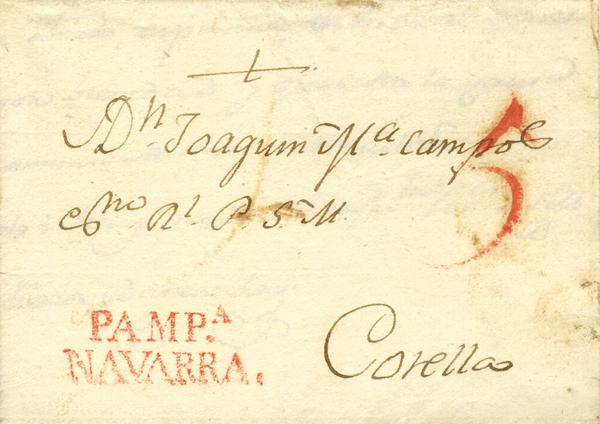 A Dn. Joaquin Ma. Campos
esno Rl. P. S. M.
5
PAMP.A
NAVARRA.
Corella